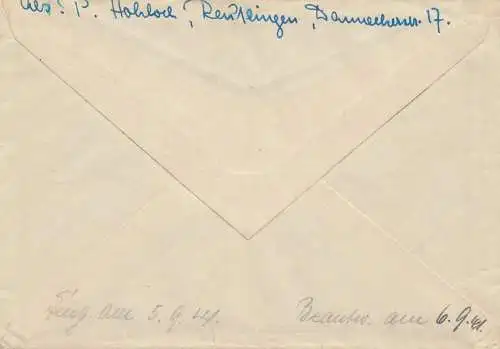 Abs: P. Hohloch, Reutlingen, Danneckerstr. 17.
Eing. am 5.9.41. Beantw. am 6.9.41.